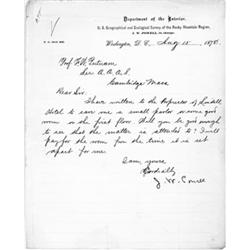 Department of the Interior.
U. S. Geographical and Geological Survey of the Rocky Mountain Region,
J. W. POWELL, In Charge.
Washington, D. C., Aug 15 187
Prof F. W. Putnam
Sec A. A. A. S.
Cambridge Mass
Dear Sir.
I have written to the Proprietor of Lindell
Hotel to save me a small parlor or some good
room on the first floor. Will you be good enough
to see that the matter is attended to? I will
pay for the room for the time it is set
apart for me.
I am, yours,
Cordially
J. W. Powell